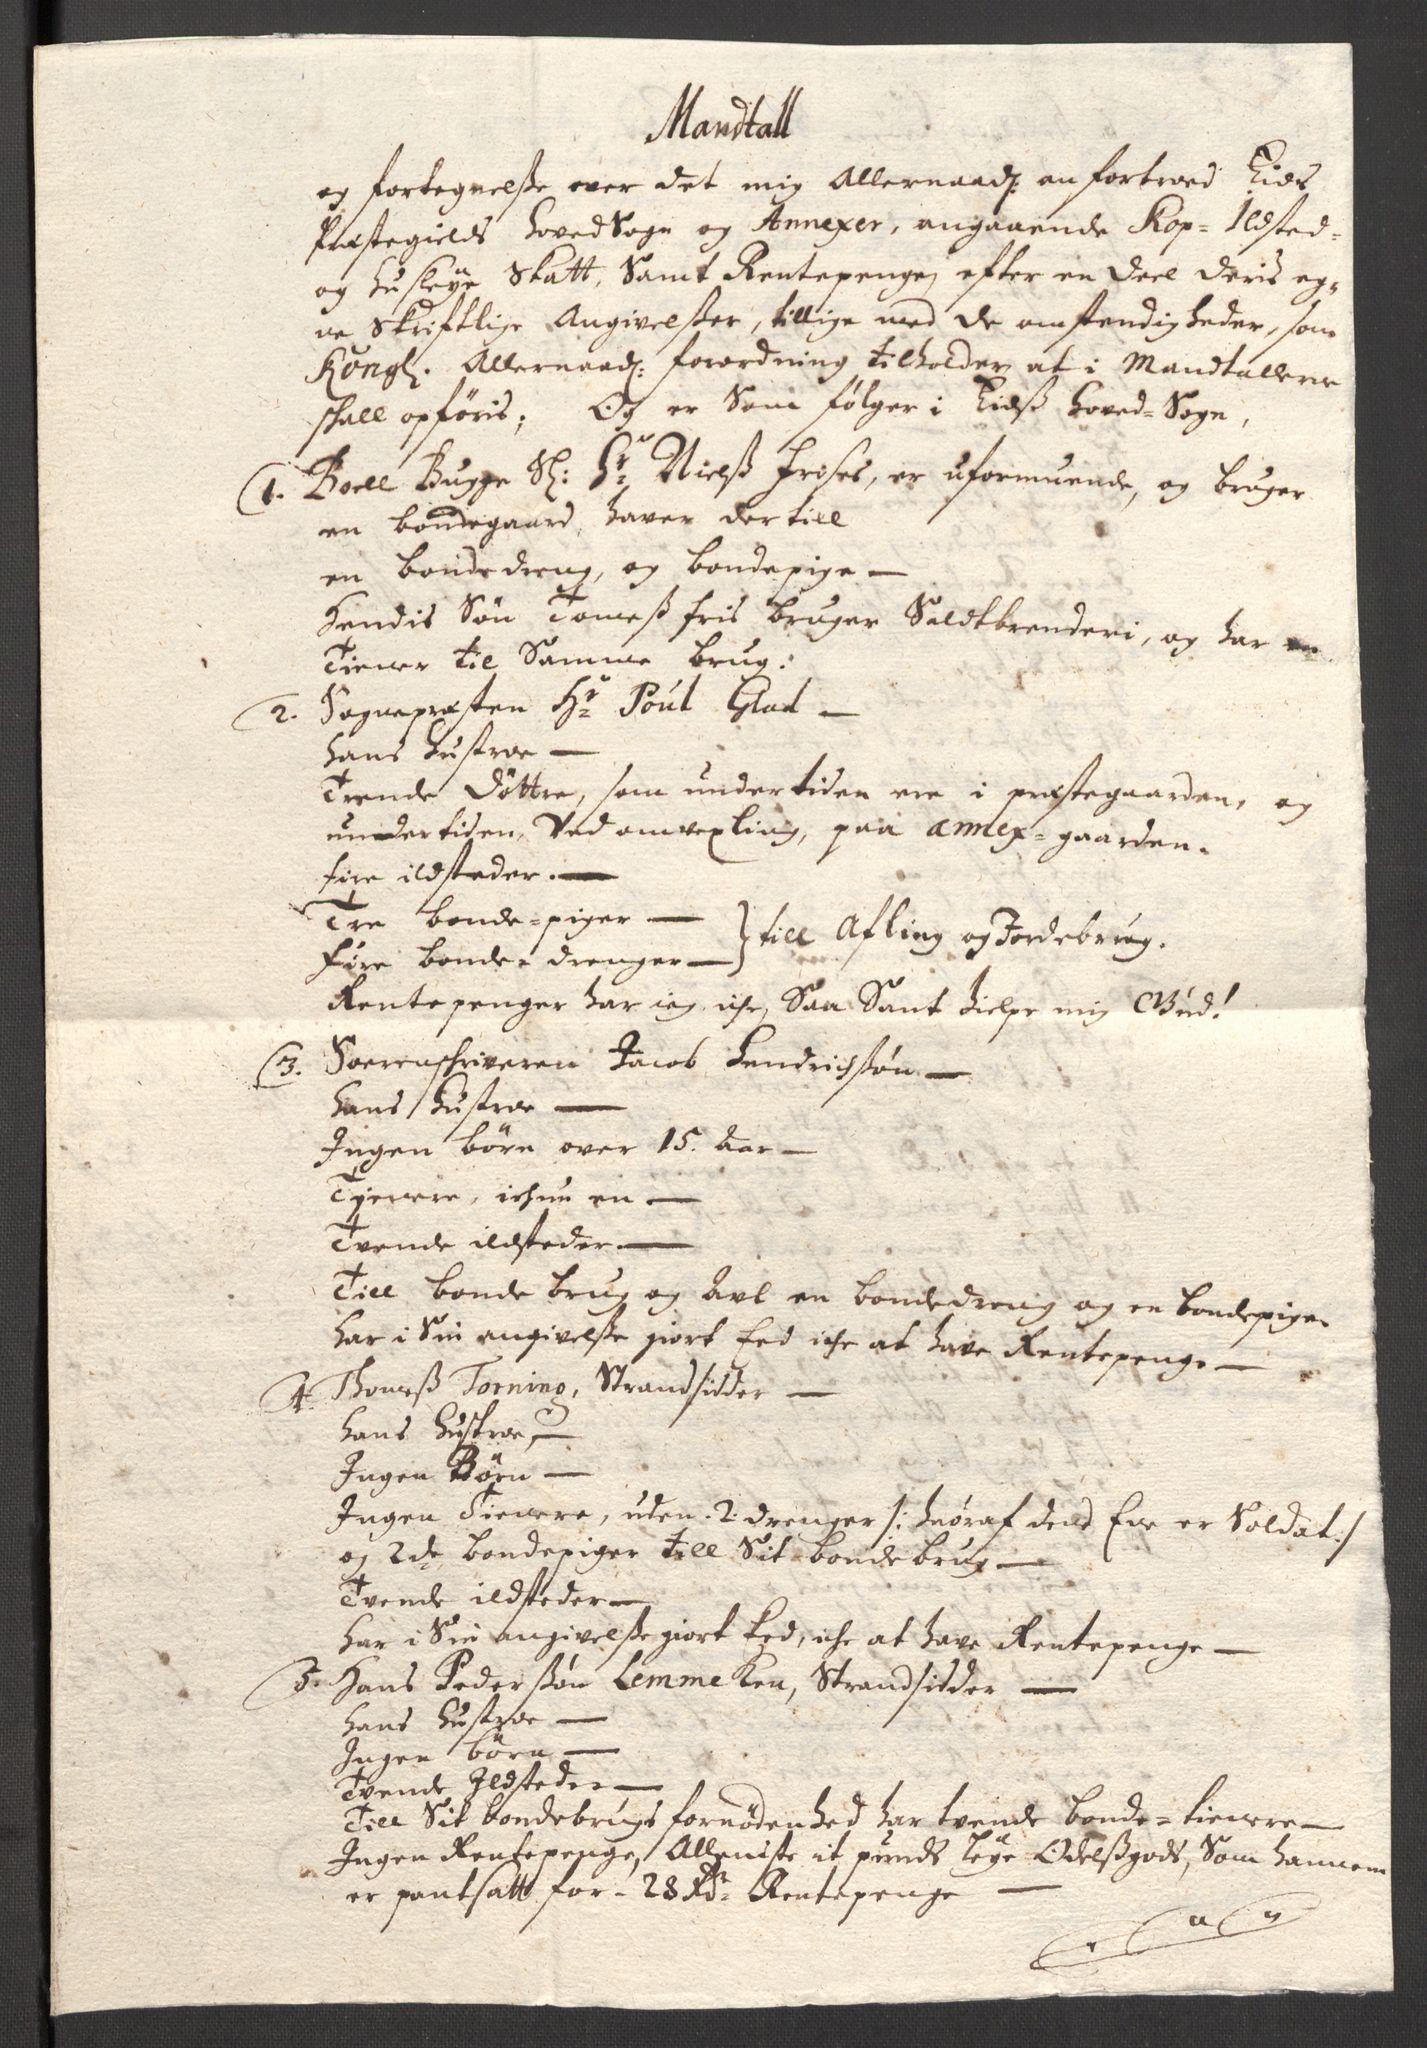 Mandtall
og fortegnelße over det mig Allernaad: anfortroed Eids
Præstegields HovedSogn og Annexer, angaaende Kop= Ildsted=
og Husleye Skatt, Samt Rentepenge, efter en Deel deris eg=
ne skriftlige Angivelßer, tillige med de omstendigheder, som
Kongl. Allernaad: forordning tilholder, at i Mandtallene
skall opföris; Og er Som følger i Eidß Hoved=Sogn,
1. Boell Bugge Sl: Hr Nielß Frises, er uformuende, og bruger
en bondegaard, haver dertill
en bondedreng, og bondepige —
Hendis Søn Tomeß fris bruger Saldtbrenderi, og har en
Tiener til Samme brug.
2. Sognepræsten Hr Poul Glad —
Hans Hustroe —
Trende Döttre, som undertiden ere i præstegaarden, og
undertiden, Ved omvexling, paa annex=gaarden.
fire ildsteder. —
Tre bonde=piger —
Fire bonde=drenger — } till Afling og Jordebrug.
Rentepenger har ieg iche, Saa Sant hielpe mig Gud!
3. Sorenschriveren Jacob Hendrichßøn —
Hans Hustroe —
Ingen börn over 15. Aar —
Tjenere, ichun en —
Tvende ildsteder —
Till bonde brug og Avl en bondedreng og en bondepige.
Har i Sin angivelße giort Eed iche at have Rentepenge —
4. Thomeß Torning, Strandsidder —
Hans Hustroe, —
Ingen Börn —
Ingen Tienere, uden 2 drenger /: hvoraf dend Ene er Soldat :/
og 2de bondepiger till Sit bondebrug —
Tvende ildsteder —
Har i Sin angivelße giort Eed, iche at have Rentepenge —
5. Hans Pederßøn Lemmeken, Strandsidder —
Hans Hustroe —
Ingen börn —
Tvende Ildsteder —
Till Sit bondebrugs fornödenhed har tvende bonde=tienere —
Ingen Rentepenge, Alleniste it punds leye Odelßgods, Som hannem
er pantsatt for - 28 Rdr Rentepenge —